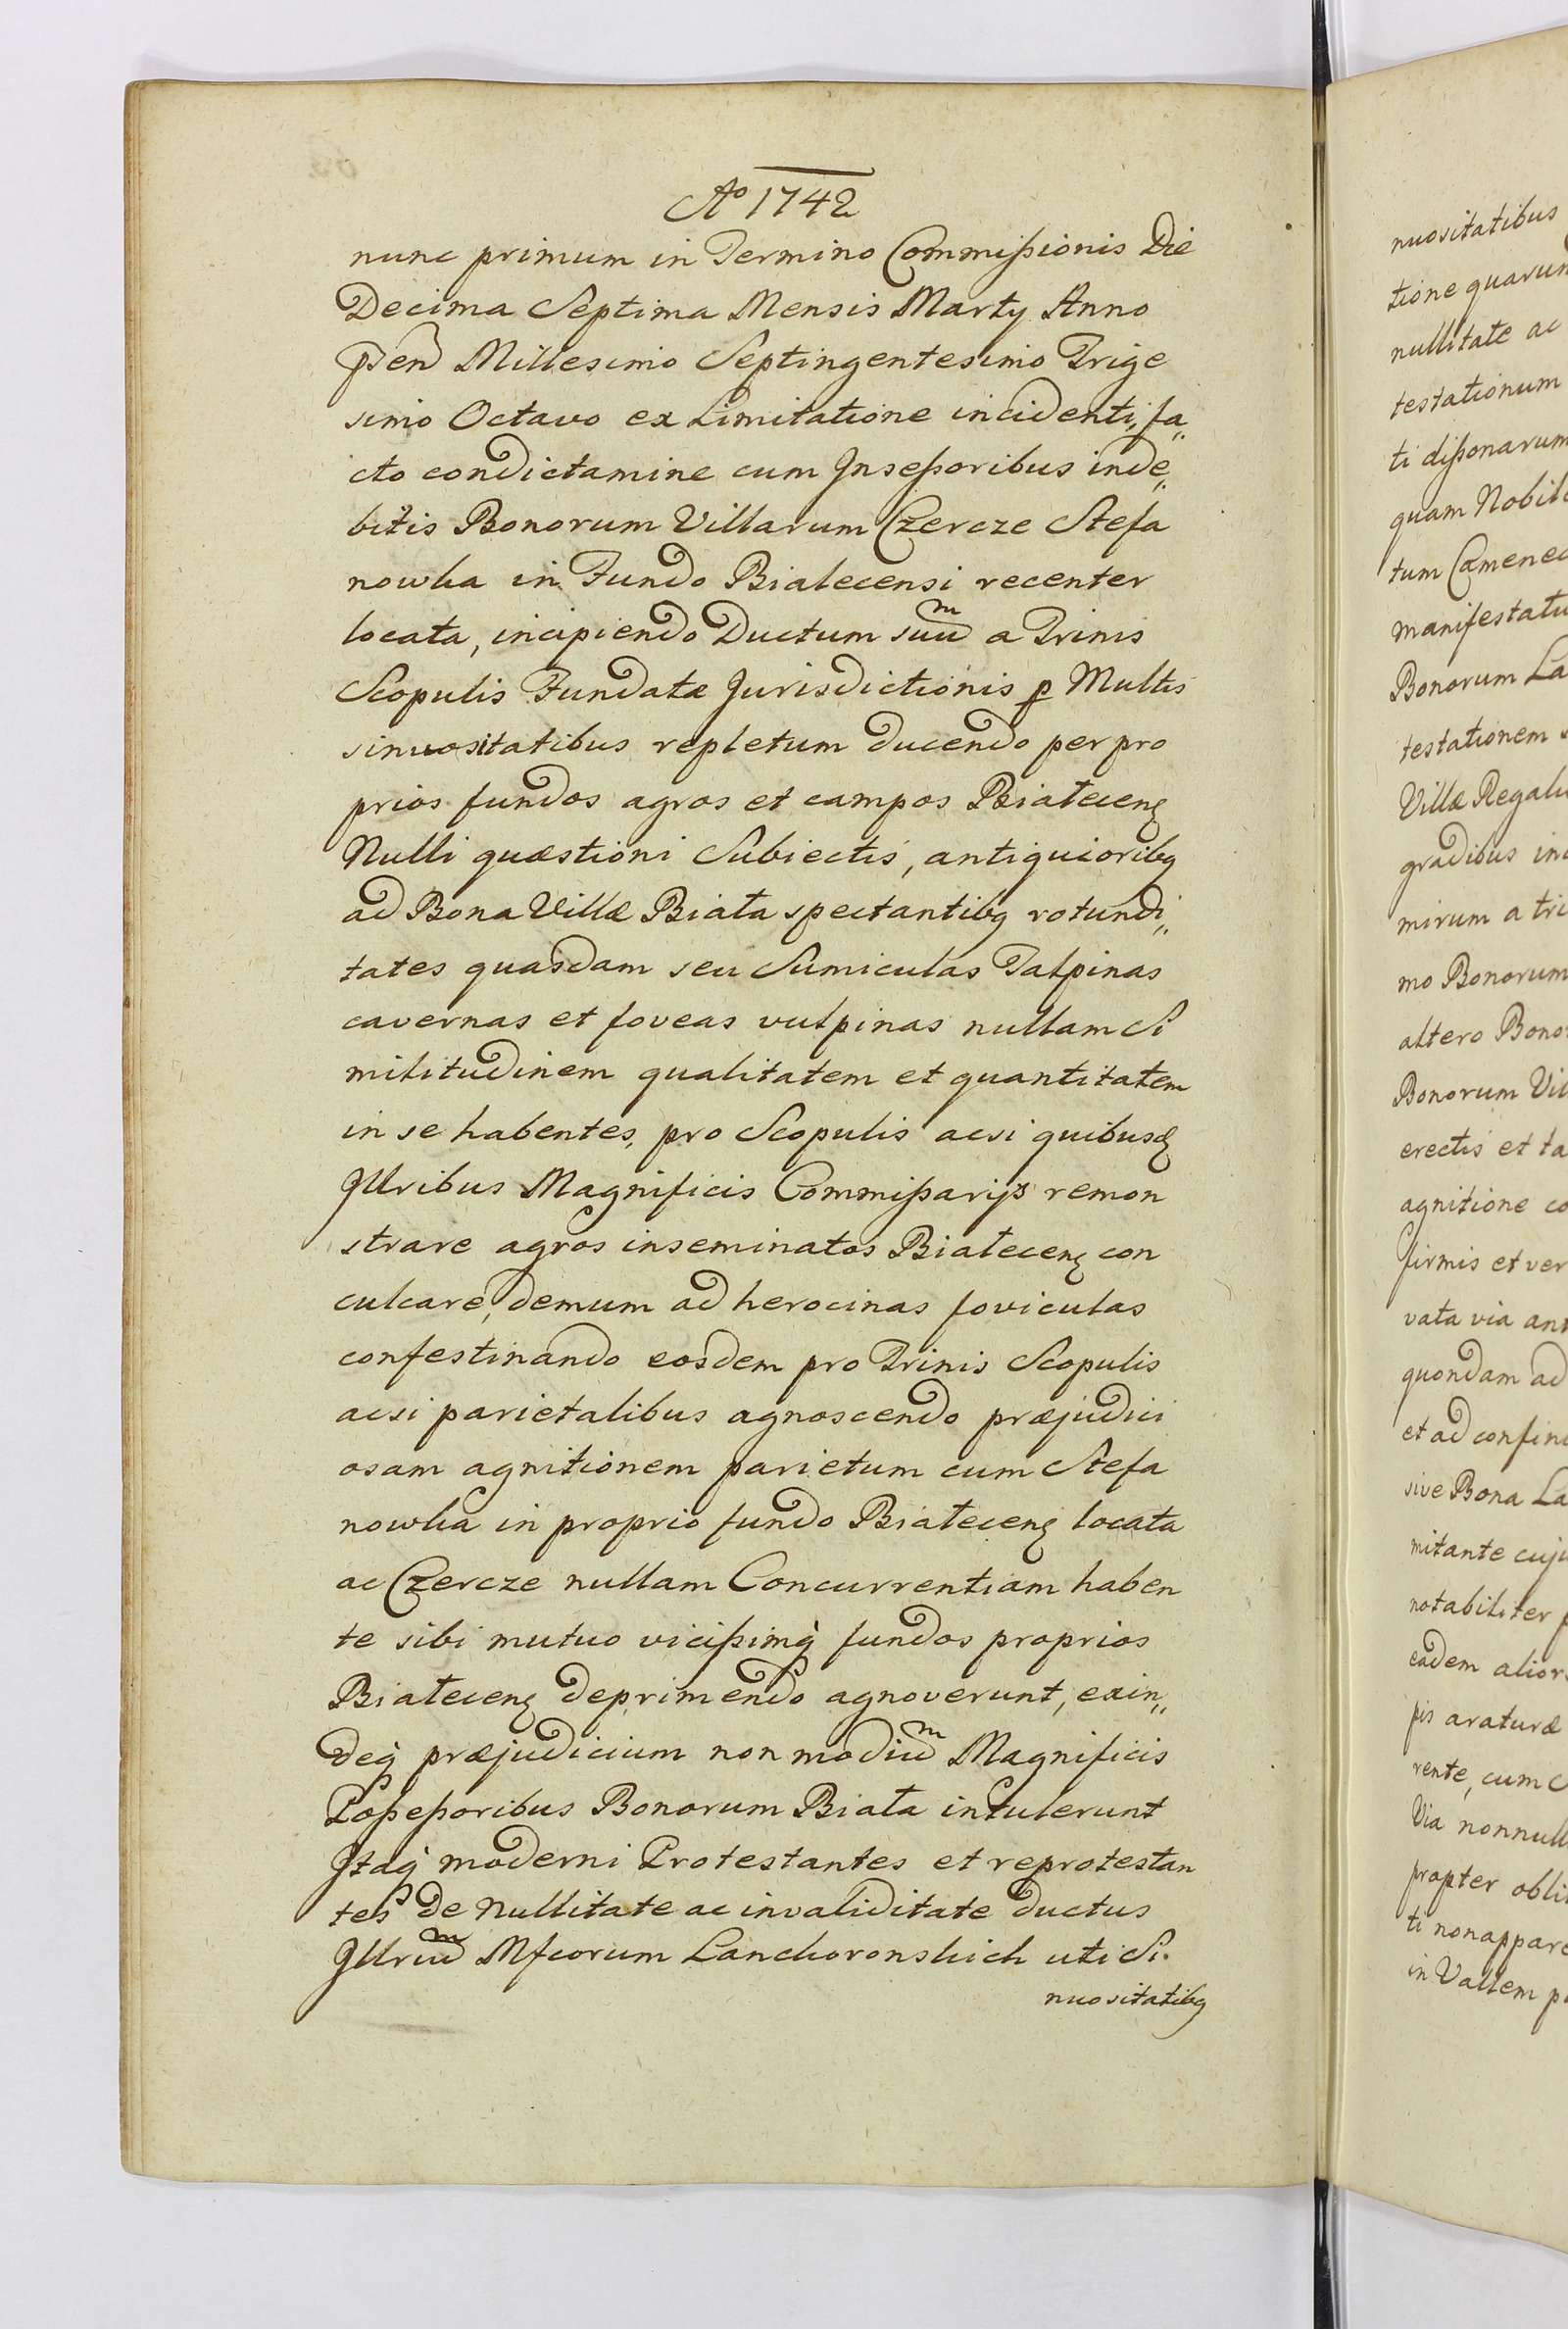 Ao 1742
nunc primum in Termino Commißionis Die
Decima Septima Mensis Marty Anno
Pñ Millesimo Septingentesimo Trige
simo Octavo ex Limitatione incidenti, fa„
cto condictamine cum Inseßoribus inde„
bitis Bonorum Villarum Czercze Stefa
nowka in Fundo Bialecensi recenter
locata, incipiendo Ductum suūm a Trinis
Scopulis Fundatæ Jurisdictionis p Multis
sinuositatibus repletum ducendo per pro
prios fundos agros et campos Białecenꝫ
Nulli quæstioni Subiectis, antiquioribꝫ
ad Bona Villæ Biała spectantibꝫ rotundi„
tates quasdam seu Sumiculas Talpinas
cavernas et foveas vulpinas nullam Si
militudinem qualitatem et quantitatem
in se habentes, pro Scopulis acsi quibusꝫ
Illribus Magnificis Commißarijs remon
strare agros inseminatos Białecenꝫ con
culcare, demum ad herocinas foviculas
confestinando eosdem pro Trinis Scopulis
acsi parietalibus agnoscendo præjudici
osam agnitionem parietum cum Stefa
nowka in proprio fundo Białecenꝫ locata
ac Czercze nullam Concurrentiam haben
te sibi mutuo vicißimq fundos proprios
Białecenꝫ deprimendo agnoverunt, exin„
deq præjudicium non modiūm Magnificis
Poßeßoribus Bonorum Biała intulerunt
Itaq moderni Protestantes et reprotestan
tes de Nullitate ac invaliditate ductus
Illriūm Mfcorum Lanckoronskich uti Si.
nuositatibꝫ
nuositatibus
tione quarum
nullitate ac
testationum
ti dißonarum
quam Nobil
tum Camenec
manifestatu
Bonorum La
testationem
Villæ Regali
gradibus in
mirum a tri
mo Bonorum
altero Bono
Bonorum Vil
erectis et ta
agnitione co
firmis et ver
vata via an
quondam ad
et ad confin
sive Bona La
mitante cuju
notabiliter
eadem alior
pis araturæ
rente, cum
Via nonnull
propter obli
ti non appare
in Vallem p